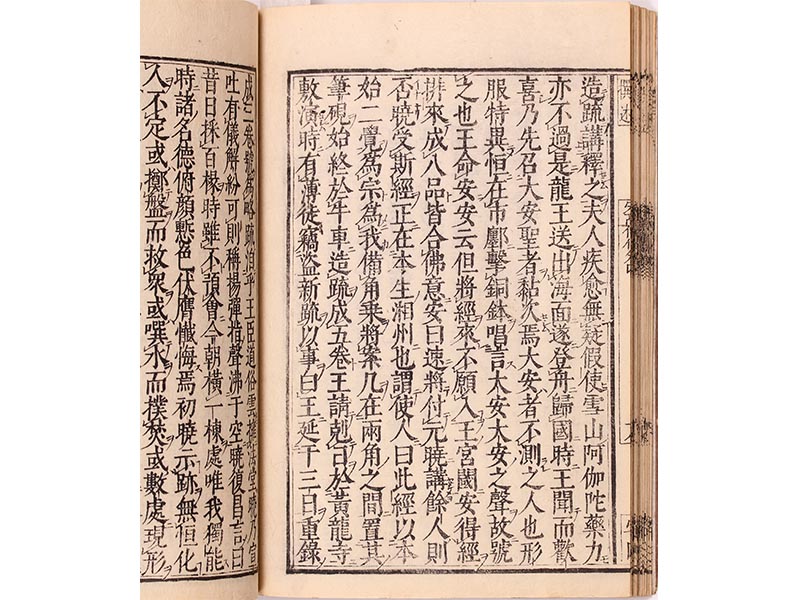 造疏講釋之夫人疾愈無疑假使雪山阿伽陀藥力
亦不過是龍王送出海面遂登舟歸國時王聞而歡
喜乃先召大安聖者黏次焉大安者不測之人也形
服特異恒在市鄽擊銅鉢唱言大安大安之聲故號
之也王命安安云但將經來不願入王宮閾安得經
排來成八品皆合佛意安曰速將付元曉講餘人則
否曉受斯經正在本生湘州也謂使人曰此經以本
始二覺為宗為我備角乗將案几在兩角之間置其
筆硯始終於牛車造疏成五卷王請剋日於黃龍寺
敷演時有薄徒竊盜新疏以事白王延于三日重錄
成三卷號為略疏洎乎王臣道俗雲擁法堂曉乃宣
吐有儀解紛可則稱揚彈指聲沸于空曉復昌言曰
昔日採百椽時雖不預會今朝橫一棟處唯我獨能
時諸名德俯顏慙色伏膺懺悔焉初曉示跡無恒化
人不定或擲盤而救衆或噀水而撲焚或數處現形